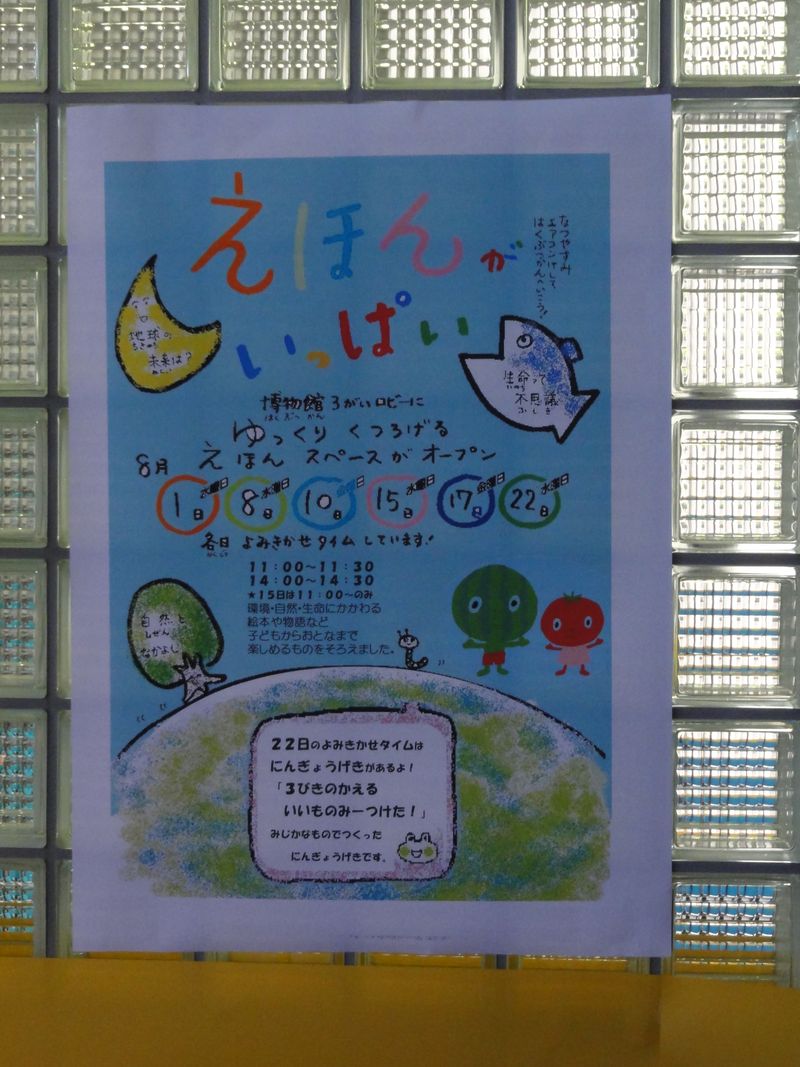 えほんが
いっぱい
なつやすみ
エアコンけして
はくぶつかんへいこう!
地球の
ちきゅう
未来は?
みらい
生命って
いのち
不思議
ふしぎ
博物館3がいロビーに
はくぶつかん
ゆっくり くつろげる
えほん スペースが オープン
8月
1日 水曜日
8日 水曜日
10日 金曜日
15日 水曜日
17日 金曜日
22日 水曜日
各日 よみきかせタイム しています!
かくじつ
11:00〜11:30
14:00〜14:30
★15日は11:00〜のみ
環境・自然・生命にかかわる
絵本や物語など
子どもからおとなまで
楽しめるものをそろえました。
自然と
しぜん
なかよし
22日のよみきかせタイムは
にんぎょうげきがあるよ!
「3びきのかえる
いいものみーつけた!」
みじかなものでつくった
にんぎょうげきです。